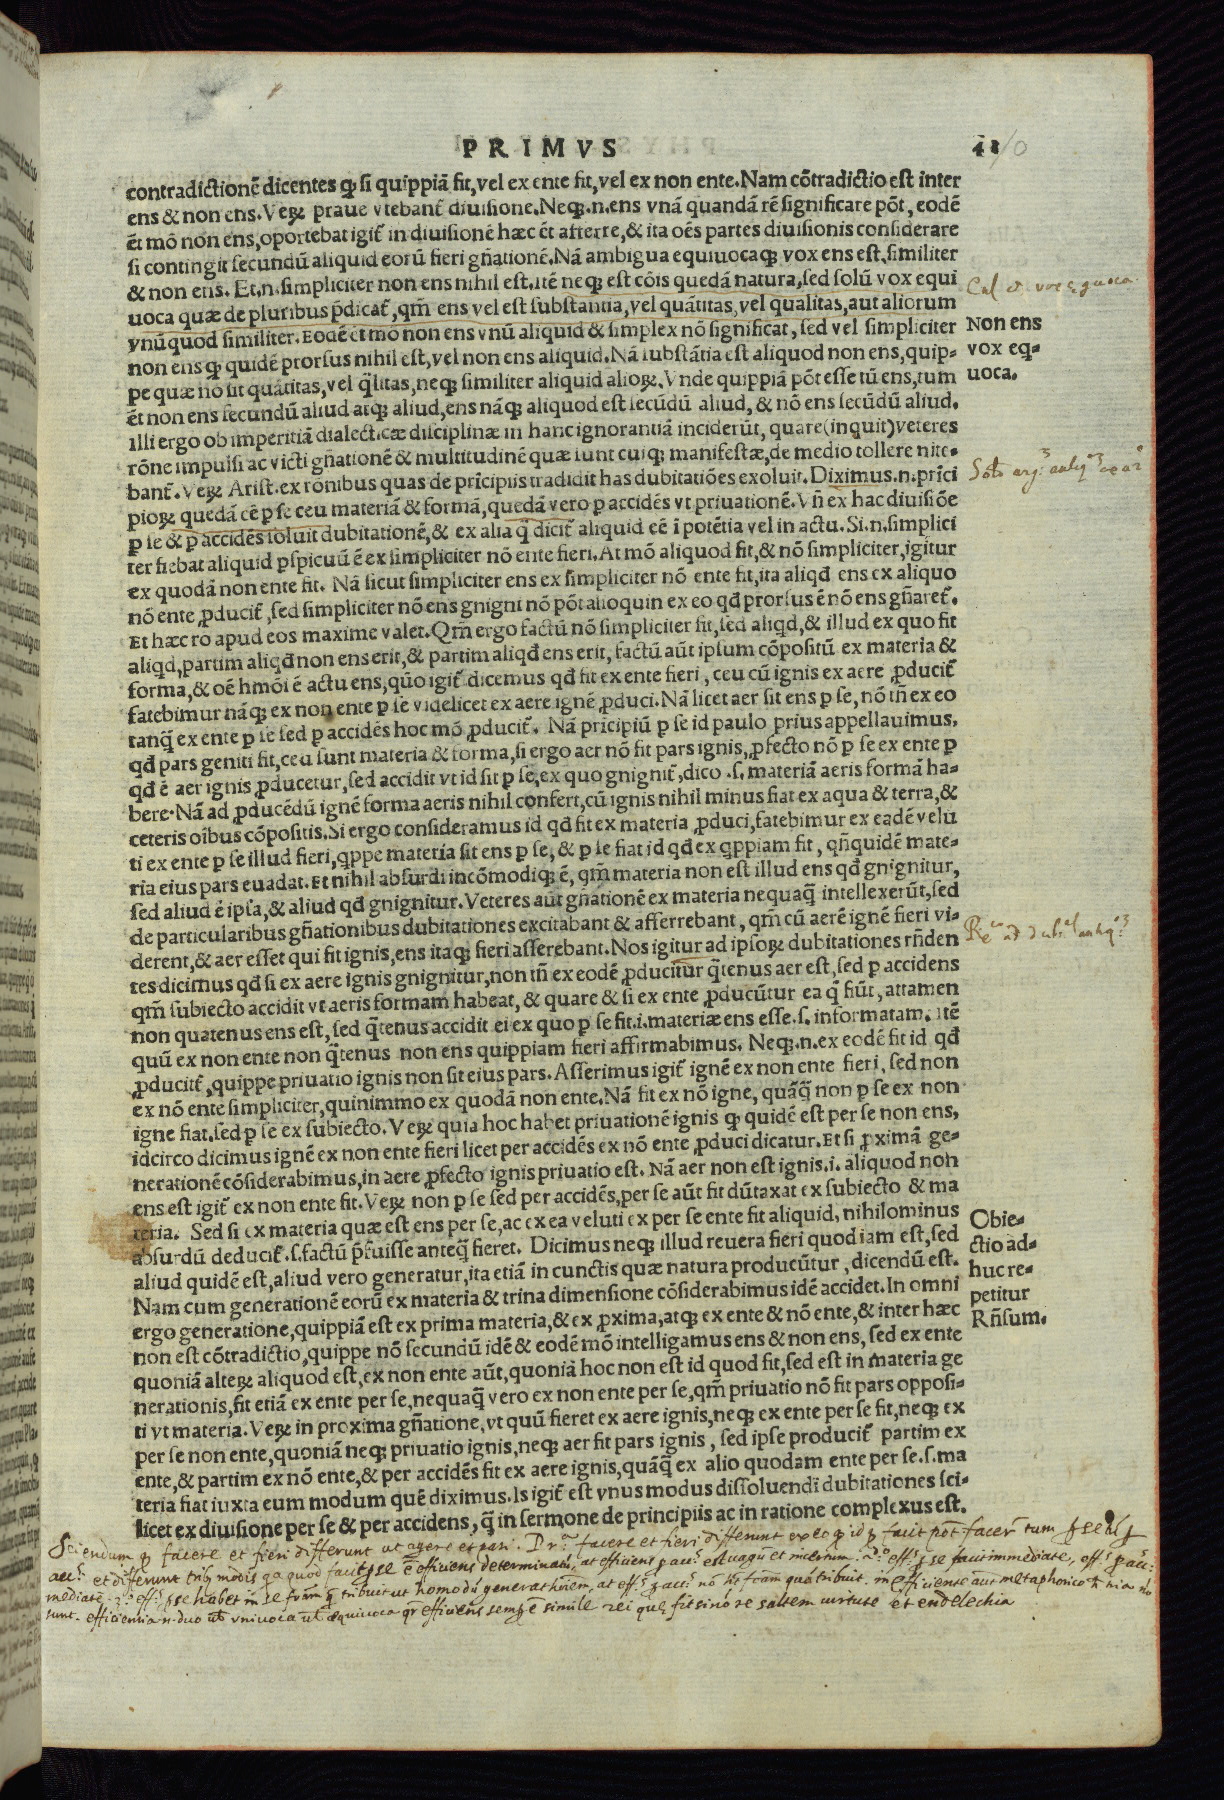 PRIMVS
41
contradictionē dicentes ꝙ si quippiā fit, vel ex ente fit, vel ex non ente. Nam cōtradictio est inter
ens & non ens. Veꝝ praue vtebant̃ diuisione. Neqꝫ.n.ens vnā quandā rē significare pōt, eodē
ēt mō non ens, oportebat igit̃ in diuisionē hæc ēt afferre, & ita oēs partes diuisionis considerare
si contingit secundū aliquid eorū fieri gñationē. Nā ambigua equiuocaqꝫ vox ens est, similiter
& non ens. Et.n.simpliciter non ens nihil est. itē neqꝫ est cōis quedā natura, sed solū vox equi
uoca quæ de pluribus p̄dicat̃, qm̄ ens vel est substantia, vel quātitas, vel qualitas, aut aliorum
vnū quod similiter. Eodē ēt mō non ens vnū aliquid & simplex nō significat, sed vel simpliciter
non ens ꝙ quidē prorsus nihil est, vel non ens aliquid. Nā substātia est aliquod non ens, quip-
pe quæ nō sit quātitas, vel q̄litas, neqꝫ similiter aliquid alioꝝ. Vnde quippiā pōt esse tū ens, tum
ēt non ens secundū aliud atqꝫ aliud, ens nāqꝫ aliquod est secūdū aliud, & nō ens secūdū aliud.
Illi ergo ob imperitiā dialecticæ disciplinæ in hanc ignorantiā inciderūt, quare (inquit) veteres
rōne impulsi ac victi gñationē & multitudinē quæ sunt cuiqꝫ manifestæ, de medio tollere nite-
bant̃. Veꝝ Arist. ex rōnibus quas de principiis tradidit has dubitatiōes exoluit. Diximus.n.prīci
pioꝝ quedā eē p se ceu materiā & formā, quedā vero p accidēs vt priuationē. Vñ ex hac diuisiōe
p se & p accidēs soluit dubitationē, & ex alia q̄ dicit̃ aliquid eē ī potētia vel in actu. Si.n.simplici
ter fiebat aliquid pspicuū ē ex simpliciter nō ente fieri. At mō aliquod fit, & nō simpliciter, igitur
ex quodā non ente fit. Nā sicut simpliciter ens ex simpliciter nō ente fit, ita aliqd̄ ens ex aliquo
nō ente ꝓducit̃, sed simpliciter nō ens gnigni nō pōt alioquin ex eo qd̄ prorsus ē nō ens gñaret̃.
Et hæc rō apud eos maxime valet. Qm̄ ergo factū nō simpliciter fit, sed aliqd, & illud ex quo fit
aliqd, partim aliqd̄ non ens erit, & partim aliqd̄ ens erit, factū aūt ipsum cōpositū ex materia &
forma, & oē hmōi ē actu ens, quō igit̃ dicemus qd̄ fit ex ente fieri, ceu cū ignis ex aere ꝓducit̃
fatebimur nāqꝫ ex non ente p se videlicet ex aere ignē ꝓduci. Nā licet aer sit ens p se, nō tñ ex eo
tanq̄ ex ente p se sed p accidēs hoc mō ꝓducit̃. Nā principiū p se id paulo prius appellauimus,
qd̄ pars geniti fit, ceu sunt materia & forma, si ergo aer nō fit pars ignis, ꝓfecto nō p se ex ente p
qd̄ ē aer ignis ꝓducetur, sed accidit vt id sit p se, ex quo gnignit̃, dico .s. materiā aeris formā ha-
bere. Nā ad ꝓducēdū ignē forma aeris nihil confert, cū ignis nihil minus fiat ex aqua & terra, &
ceteris oībus cōpositis. Si ergo consideramus id qd̄ fit ex materia ꝓduci, fatebimur ex eadē velu
ti ex ente p se illud fieri, qppe materia sit ens p se, & p se fiat id qd̄ ex qppiam fit, qñquidē mate-
ria eius pars euadat. Et nihil absurdi incōmodiqꝫ ē, qm̄ materia non est illud ens qd̄ gnignitur,
sed aliud ē ipsa, & aliud qd̄ gnignitur. Veteres aūt gñationē ex materia nequaq̄ intellexerūt, sed
de particularibus gñationibus dubitationes excitabant & afferrebant, qm̄ cū aerē ignē fieri vi-
derent, & aer esset qui fit ignis, ens itaqꝫ fieri asserebant. Nos igitur ad ipsoꝝ dubitationes rñden
tes dicimus qd̄ si ex aere ignis gnignitur, non tñ ex eodē ꝓducitur q̄tenus aer est, sed p accidens
qm̄ subiecto accidit vt aeris formam habeat, & quare & si ex ente ꝓducūtur ea q̄ fiūt, attamen
non quatenus ens est, sed q̄tenus accidit ei ex quo p se fit.i.materiæ ens esse.s.informatam. Itē
quū ex non ente non q̄tenus non ens quippiam fieri affirmabimus. Neqꝫ.n.ex eodē fit id qd̄
ꝓducit̃, quippe priuatio ignis non sit eius pars. Asserimus igit̃ ignē ex non ente fieri, sed non
ex nō ente simpliciter, quinimmo ex quodā non ente. Nā fit ex nō igne, quāq̄ non p se ex non
igne fiat, sed p se ex subiecto. Veꝝ quia hoc habet priuationē ignis ꝙ quidē est per se non ens,
idcirco dicimus ignē ex non ente fieri licet per accidēs ex nō ente ꝓduci dicatur. Et si ꝓximā ge-
nerationē cōsiderabimus, in aere ꝓfecto ignis priuatio est. Nā aer non est ignis.i. aliquod non
ens est igit̃ ex non ente fit. Veꝝ non p se sed per accidēs, per se aūt fit dūtaxat ex subiecto & ma
teria. Sed si ex materia quæ est ens per se, ac ex ea veluti ex per se ente fit aliquid, nihilominus
absurdū deducit̃.s.factū p̄fuisse anteq̄ fieret. Dicimus neqꝫ illud reuera fieri quod iam est, sed
aliud quidē est, aliud vero generatur, ita etiā in cunctis quæ natura producūtur, dicendū est.
Nam cum generationē eorū ex materia & trina dimensione cōsiderabimus idē accidet. In omni
ergo generatione, quippiā est ex prima materia, & ex ꝓxima, atqꝫ ex ente & nō ente, & inter hæc
non est cōtradictio, quippe nō secundū idē & eodē mō intelligamus ens & non ens, sed ex ente
quoniā alteꝝ aliquod est, ex non ente aūt, quoniā hoc non est id quod fit, sed est in materia ge
nerationis, fit etiā ex ente per se, nequaq̄ vero ex non ente per se, qm̄ priuatio nō fit pars opposi-
ti vt materia. Veꝝ in proxima gñatione, vt quū fieret ex aere ignis, neqꝫ ex ente per se fit, neqꝫ ex
per se non ente, quoniā neqꝫ priuatio ignis, neqꝫ aer fit pars ignis, sed ipse producit̃ partim ex
ente, & partim ex nō ente, & per accidēs fit ex aere ignis, quāq̄ ex alio quodam ente per se.s.ma
teria fiat iuxta eum modum quē diximus. Is igit̃ est vnus modus dissoluendi dubitationes sci-
licet ex diuisione per se & per accidens, q̄ in sermone de principiis ac in ratione complexus est.
Non ens
vox eq-
uoca.
Obie-
ctio ad-
huc re-
petitur
Rñsum.
Sciendum ꝙ facere et fieri differunt ut agere et pati. facere et fieri differunt
et differunt trib modis quod facit p se ē efficiens determinatū, at efficiens p acc. est uagū et incertum. p se facit immediate,
mediate. p se habet in se homo generationem, at nō in efficiente aut metaphorico
sunt. efficientia n. duo vnivoca æquiuoca efficiens semp ē simile rei quę fit saltem uirtute et endelechia